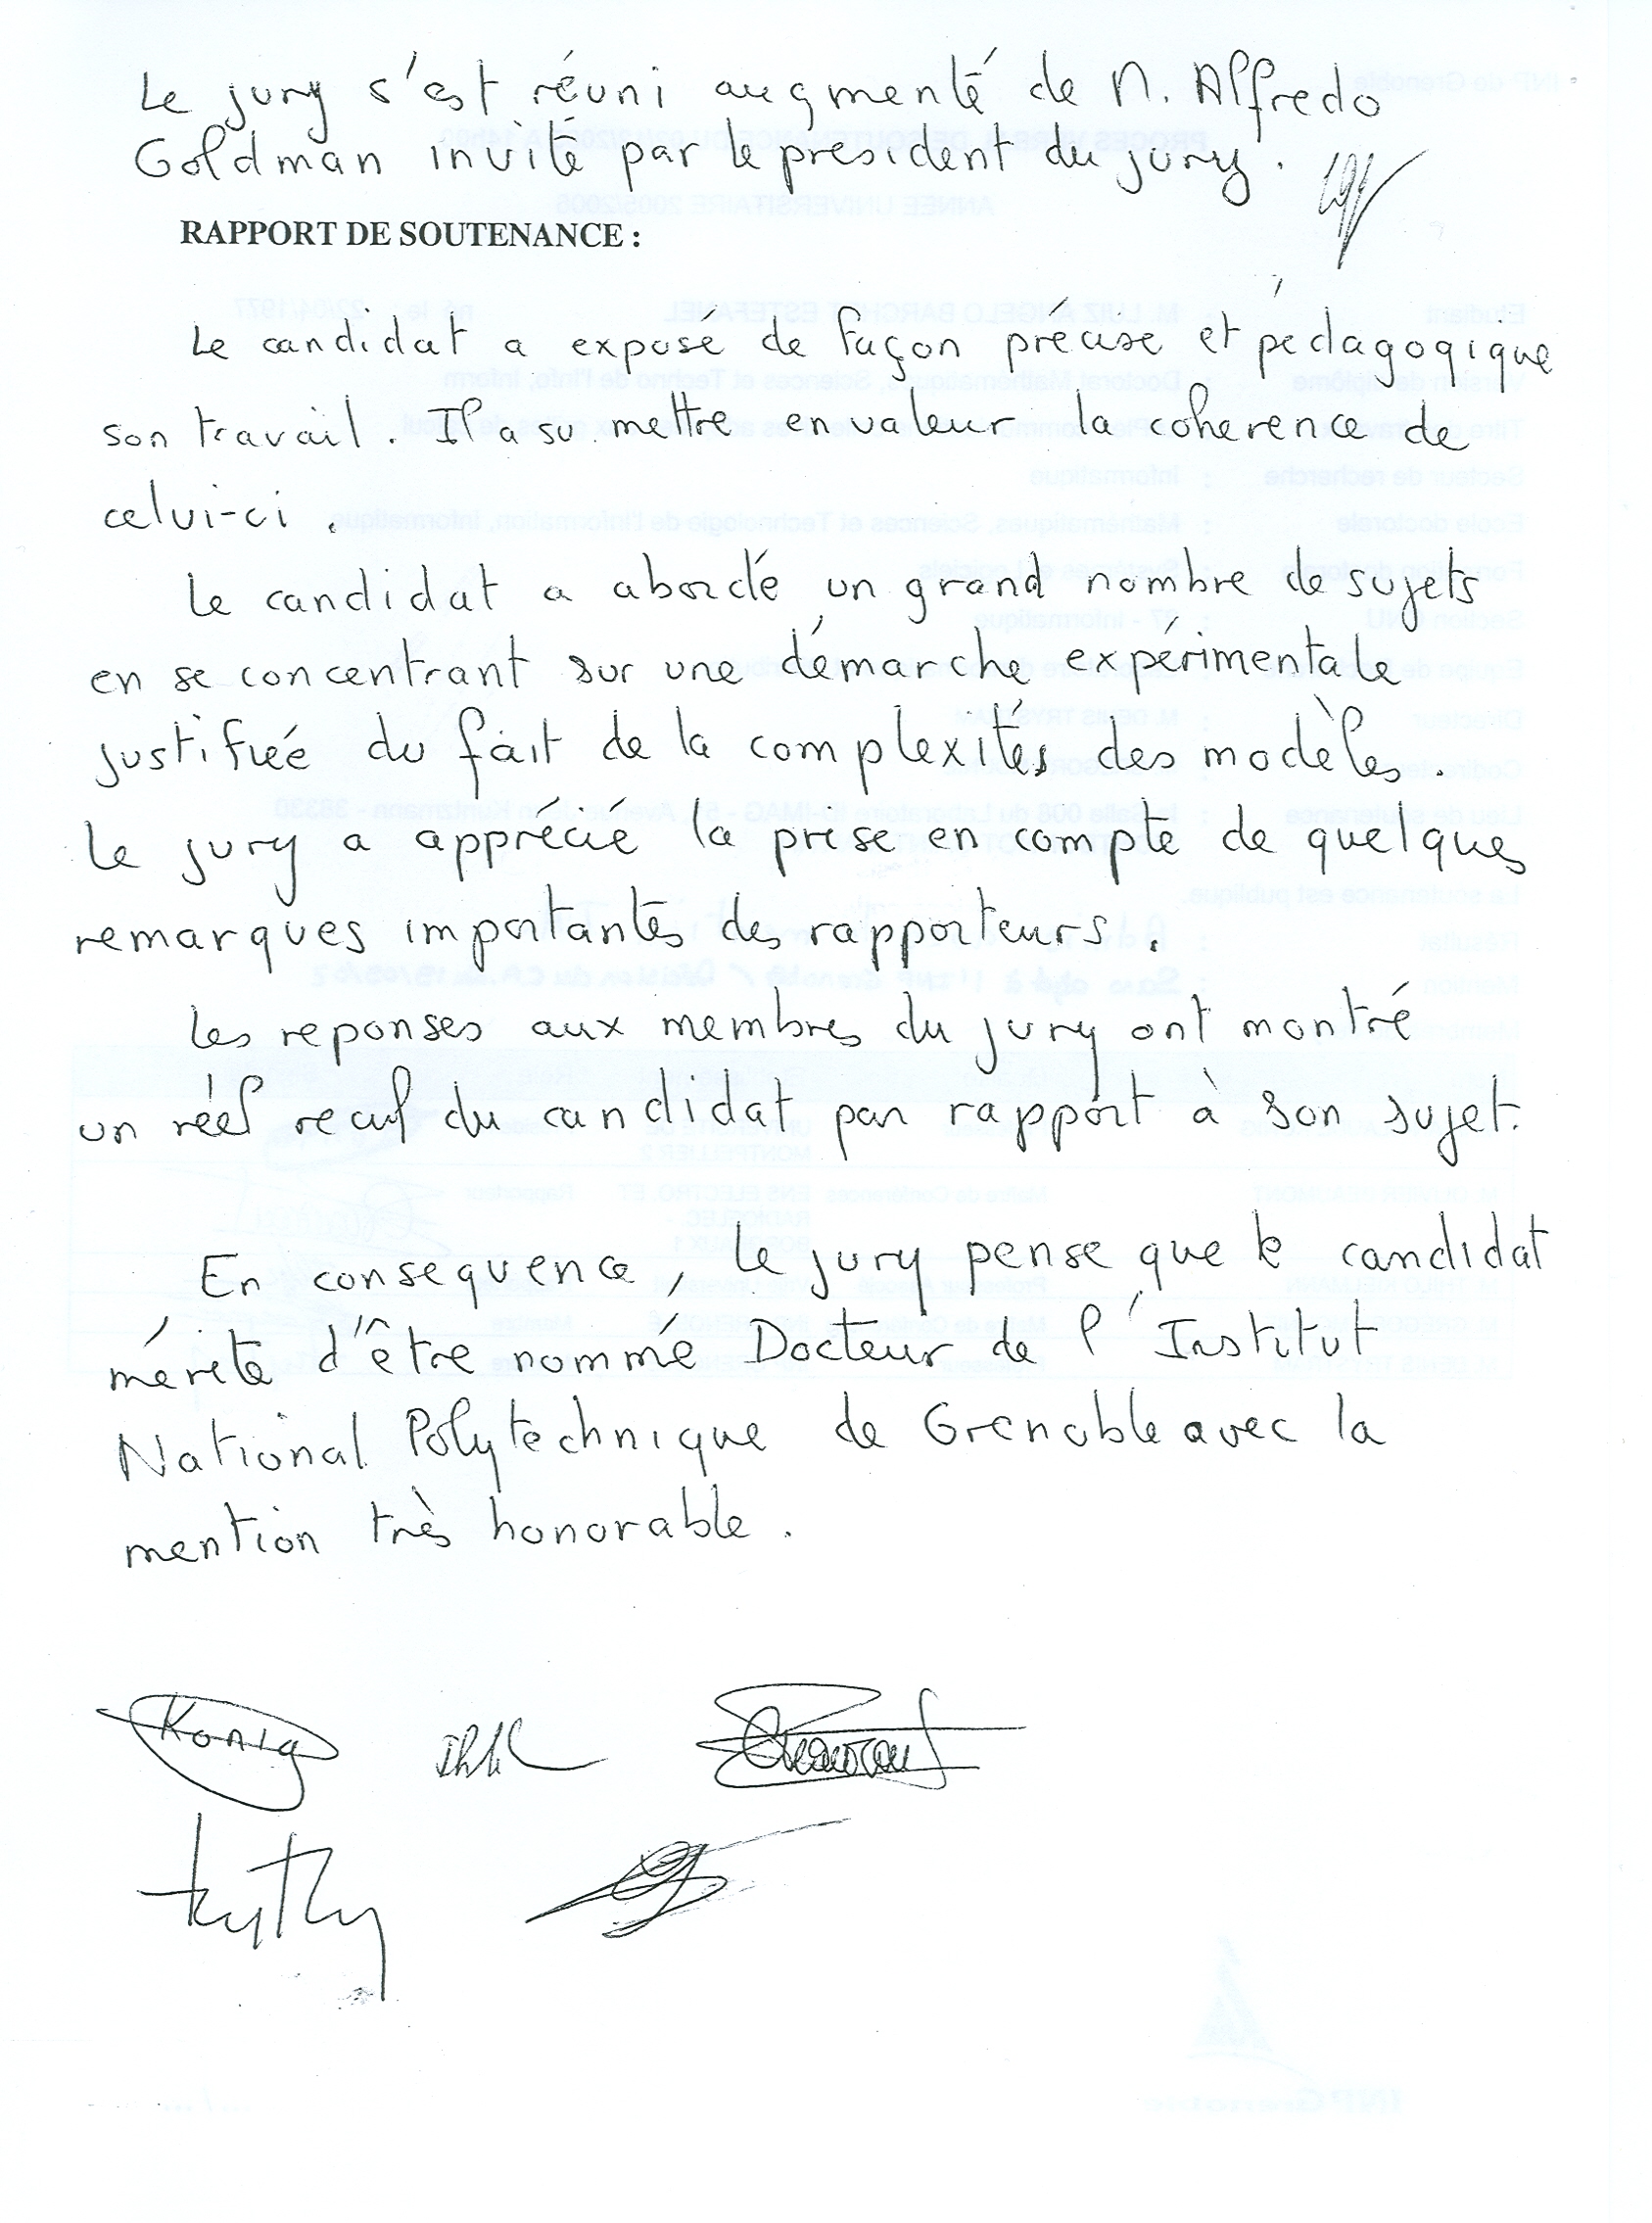 Le jury s'est réuni augmenté de M. Alfredo
Goldman invité par le président du jury.
RAPPORT DE SOUTENANCE :
Le candidat a exposé de façon précise et pédagogique
son travail. Il a su mettre en valeur la coherence de
celui-ci.
Le candidat a abordé un grand nombre de sujets
en se concentrant sur une démarche expérimentale
justifiée du fait de la complexités des modèles.
Le jury a apprécié la prise en compte de quelques
remarques importantes des rapporteurs.
Les reponses aux membres du jury ont montré
un réel recul du candidat par rapport à son sujet.
En consequence, le jury pense que le candidat
mérite d'être nommé Docteur de l'Institut
National Polytechnique de Grenoble avec la
mention très honorable.
KONIG